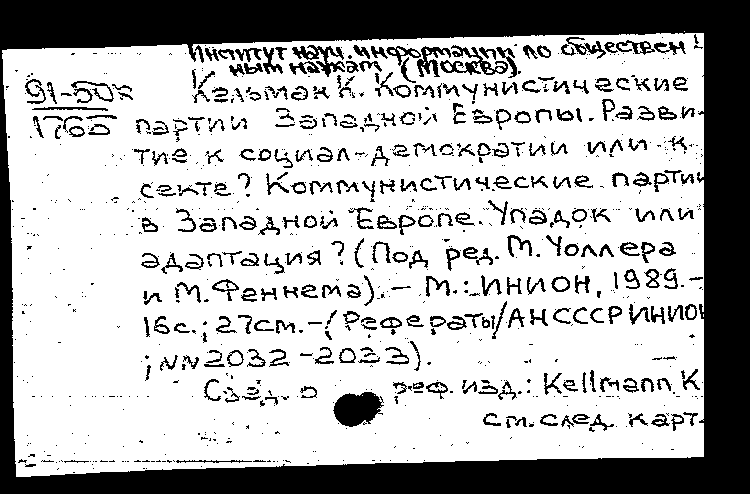 Институт науч. информации по обществен
ным наукам (Москва).
91-50к Кельман К. Коммунистические
1765 партии Западной Европы. Разви-
тие к социал-демократии или к
секте? Коммунистические партии
в Западной Европе. Упадок или
адаптация? (Под ред. М. Уоллера
и М. Феннема). - М.: ИНИОН, 1989.-
16с.; 27см.-(Рефераты/АНСССР ИНИОН
; NN2032-2033).
Свед. о реф. изд.: Kellmann K
см. след. карт.